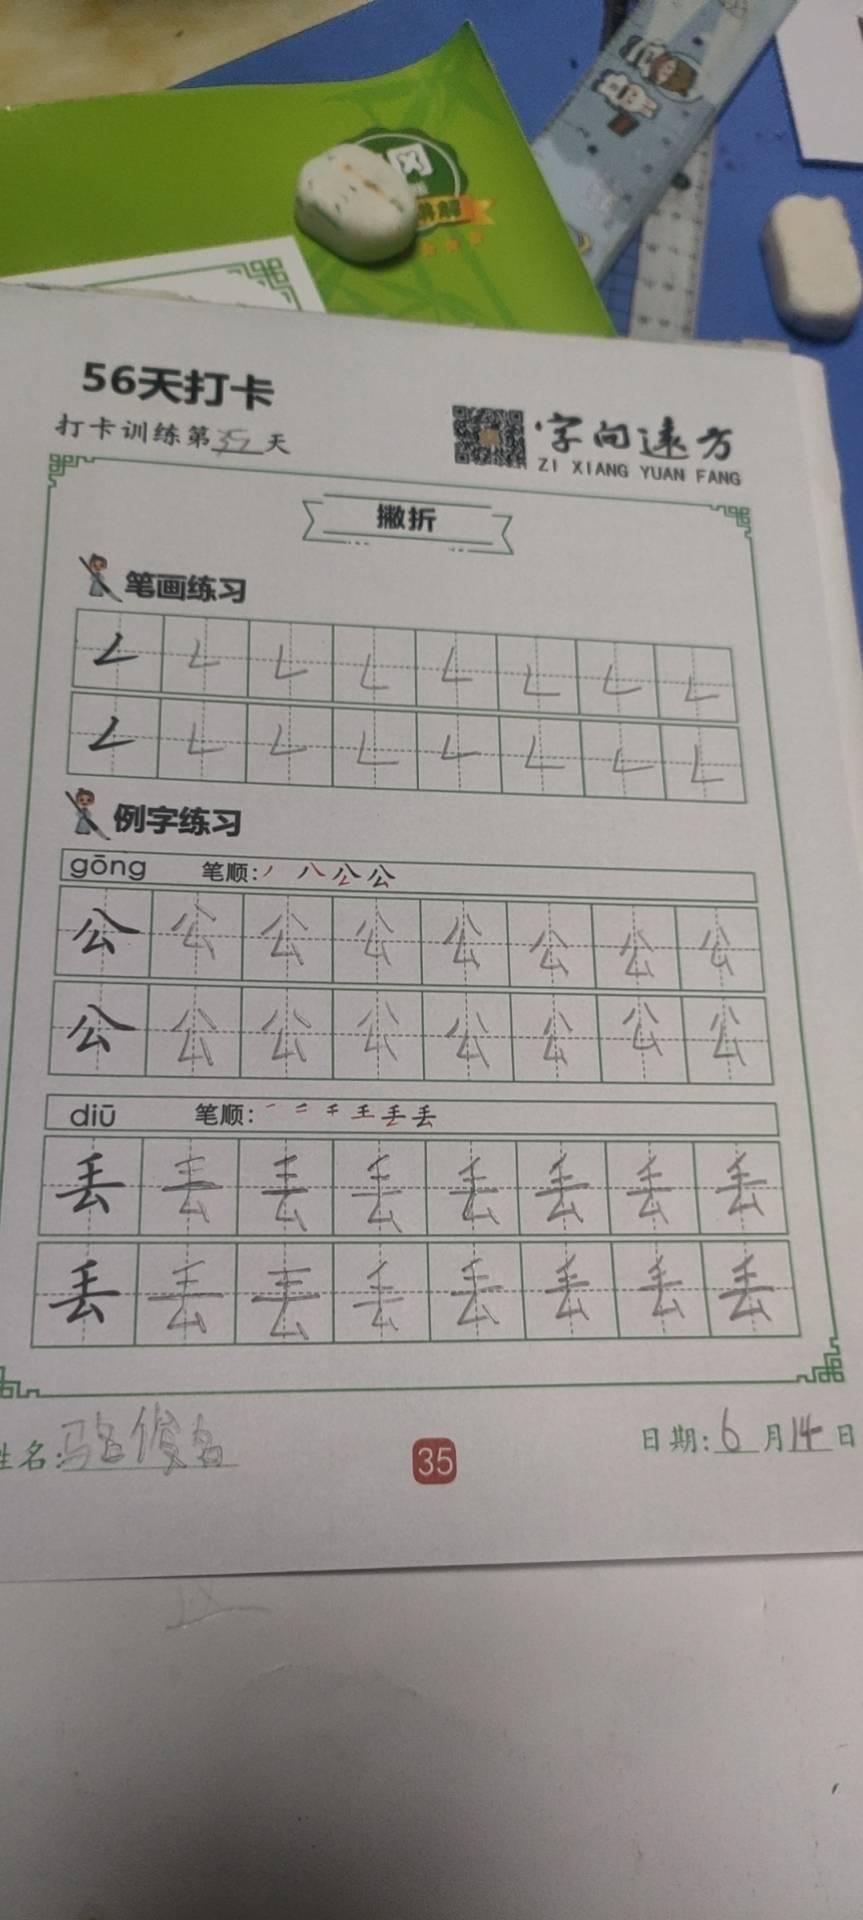 56天打卡
打卡训练第35天
字向远方
ZI XIANG YUAN FANG
撇折
笔画练习
𠃋 𠃋 𠃋 𠃋 𠃋 𠃋 𠃋 𠃋
𠃋 𠃋 𠃋 𠃋 𠃋 𠃋 𠃋 𠃋
例字练习
gōng 笔顺: 丿 八 公 公
公 公 公 公 公 公 公 公
公 公 公 公 公 公 公 公
diū 笔顺: 一 二 千 王 丢 丢
丢 丢 丢 丢 丢 丢 丢 丢
丢 丢 丢 丢 丢 丢 丢 丢
姓名:骆俊名
35
日期:6月14日